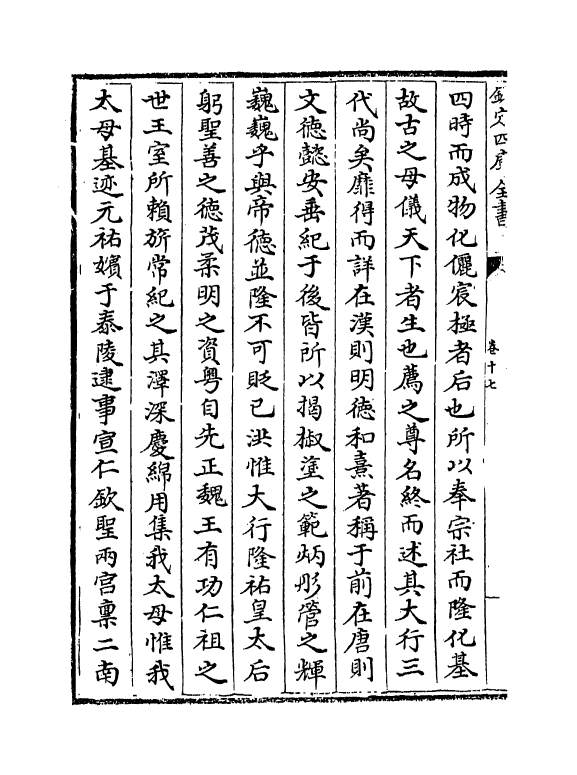 欽定四庫全書
卷十七
四時而成物化儷宸極者后也所以奉宗社而隆化基
故古之母儀天下者生也薦之尊名終而述其大行三
代尚矣靡得而詳在漢則明德和熹著稱于前在唐則
文德懿安垂紀于後皆所以揭椒塗之範炳彤管之輝
巍巍乎與帝德並隆不可貶已洪惟大行隆祐皇太后
躬聖善之德茂柔明之資粤自先正魏王有功仁祖之
世王室所賴旂常紀之其澤深慶綿用集我太母惟我
太母基迹元祐嬪于泰陵逮事宣仁欽聖兩宫稟二南